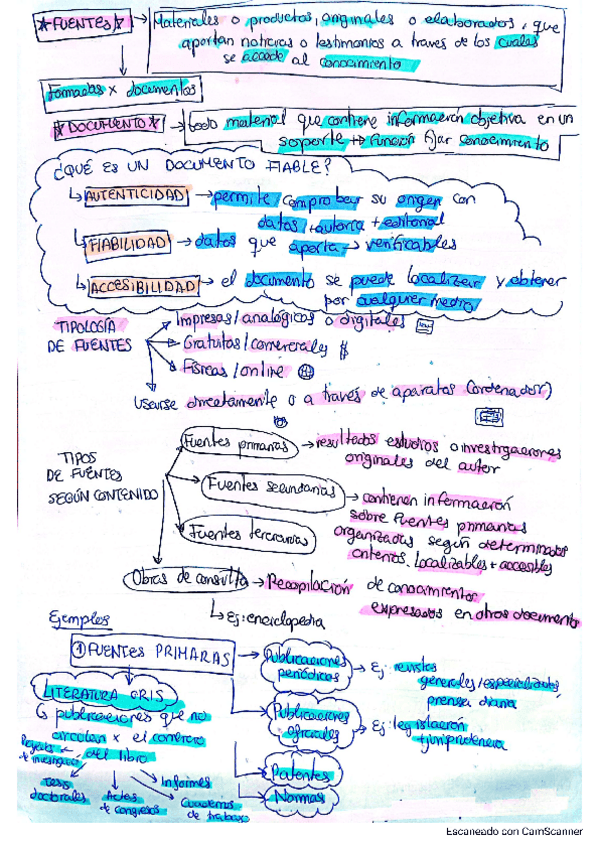 *FUENTES* → Materiales o productos, originales o elaborados, que
aportan noticias o testimonios a través de los cuales
se accede al conocimiento
Formadas x documentos
*DOCUMENTO* → todo material que contiene información objetiva en un
soporte → Función fijar conocimiento
¿QUÉ ES UN DOCUMENTO FIABLE?
↳ AUTENTICIDAD → permite comprobar su origen con
datos, + autoría + editorial
↳ FIABILIDAD → datos que aporta → verificables
↳ ACCESIBILIDAD → el documento se puede localizar y obtener
por cualquier medio
TIPOLOGÍA
DE FUENTES
Impresas/analógicos o digitales
Gratuitas/comerciales $
Físicas/online
Usarse directamente o a través de aparatos (ordenador)
TIPOS
DE FUENTES
SEGÚN CONTENIDO
Fuentes primarias → resultados estudios o investigaciones
originales del autor
Fuentes secundarias → contienen información
sobre fuentes primarias
organizadas según determinados
criterios. Localizables + accesibles
Fuentes terciarias
Obras de consulta → Recopilación de conocimientos
expresados en otros documentos
↳ Ej: enciclopedia
Ejemplos
① FUENTES PRIMARAS
Publicaciones
periódicas
→ Ej: revistas
generales/especializadas,
prensa diaria
Publicaciones
oficiales
→ Ej: legislación
+ jurisprudencia
Patentes
Normas
LITERATURA GRIS
↳ publicaciones que no
circulan x el comercio
del libro
Proyectos
de investigación
Tesis
doctorales
Actas
de congresos
Informes
Cuadernos
de trabajo
Escaneado con CamScanner